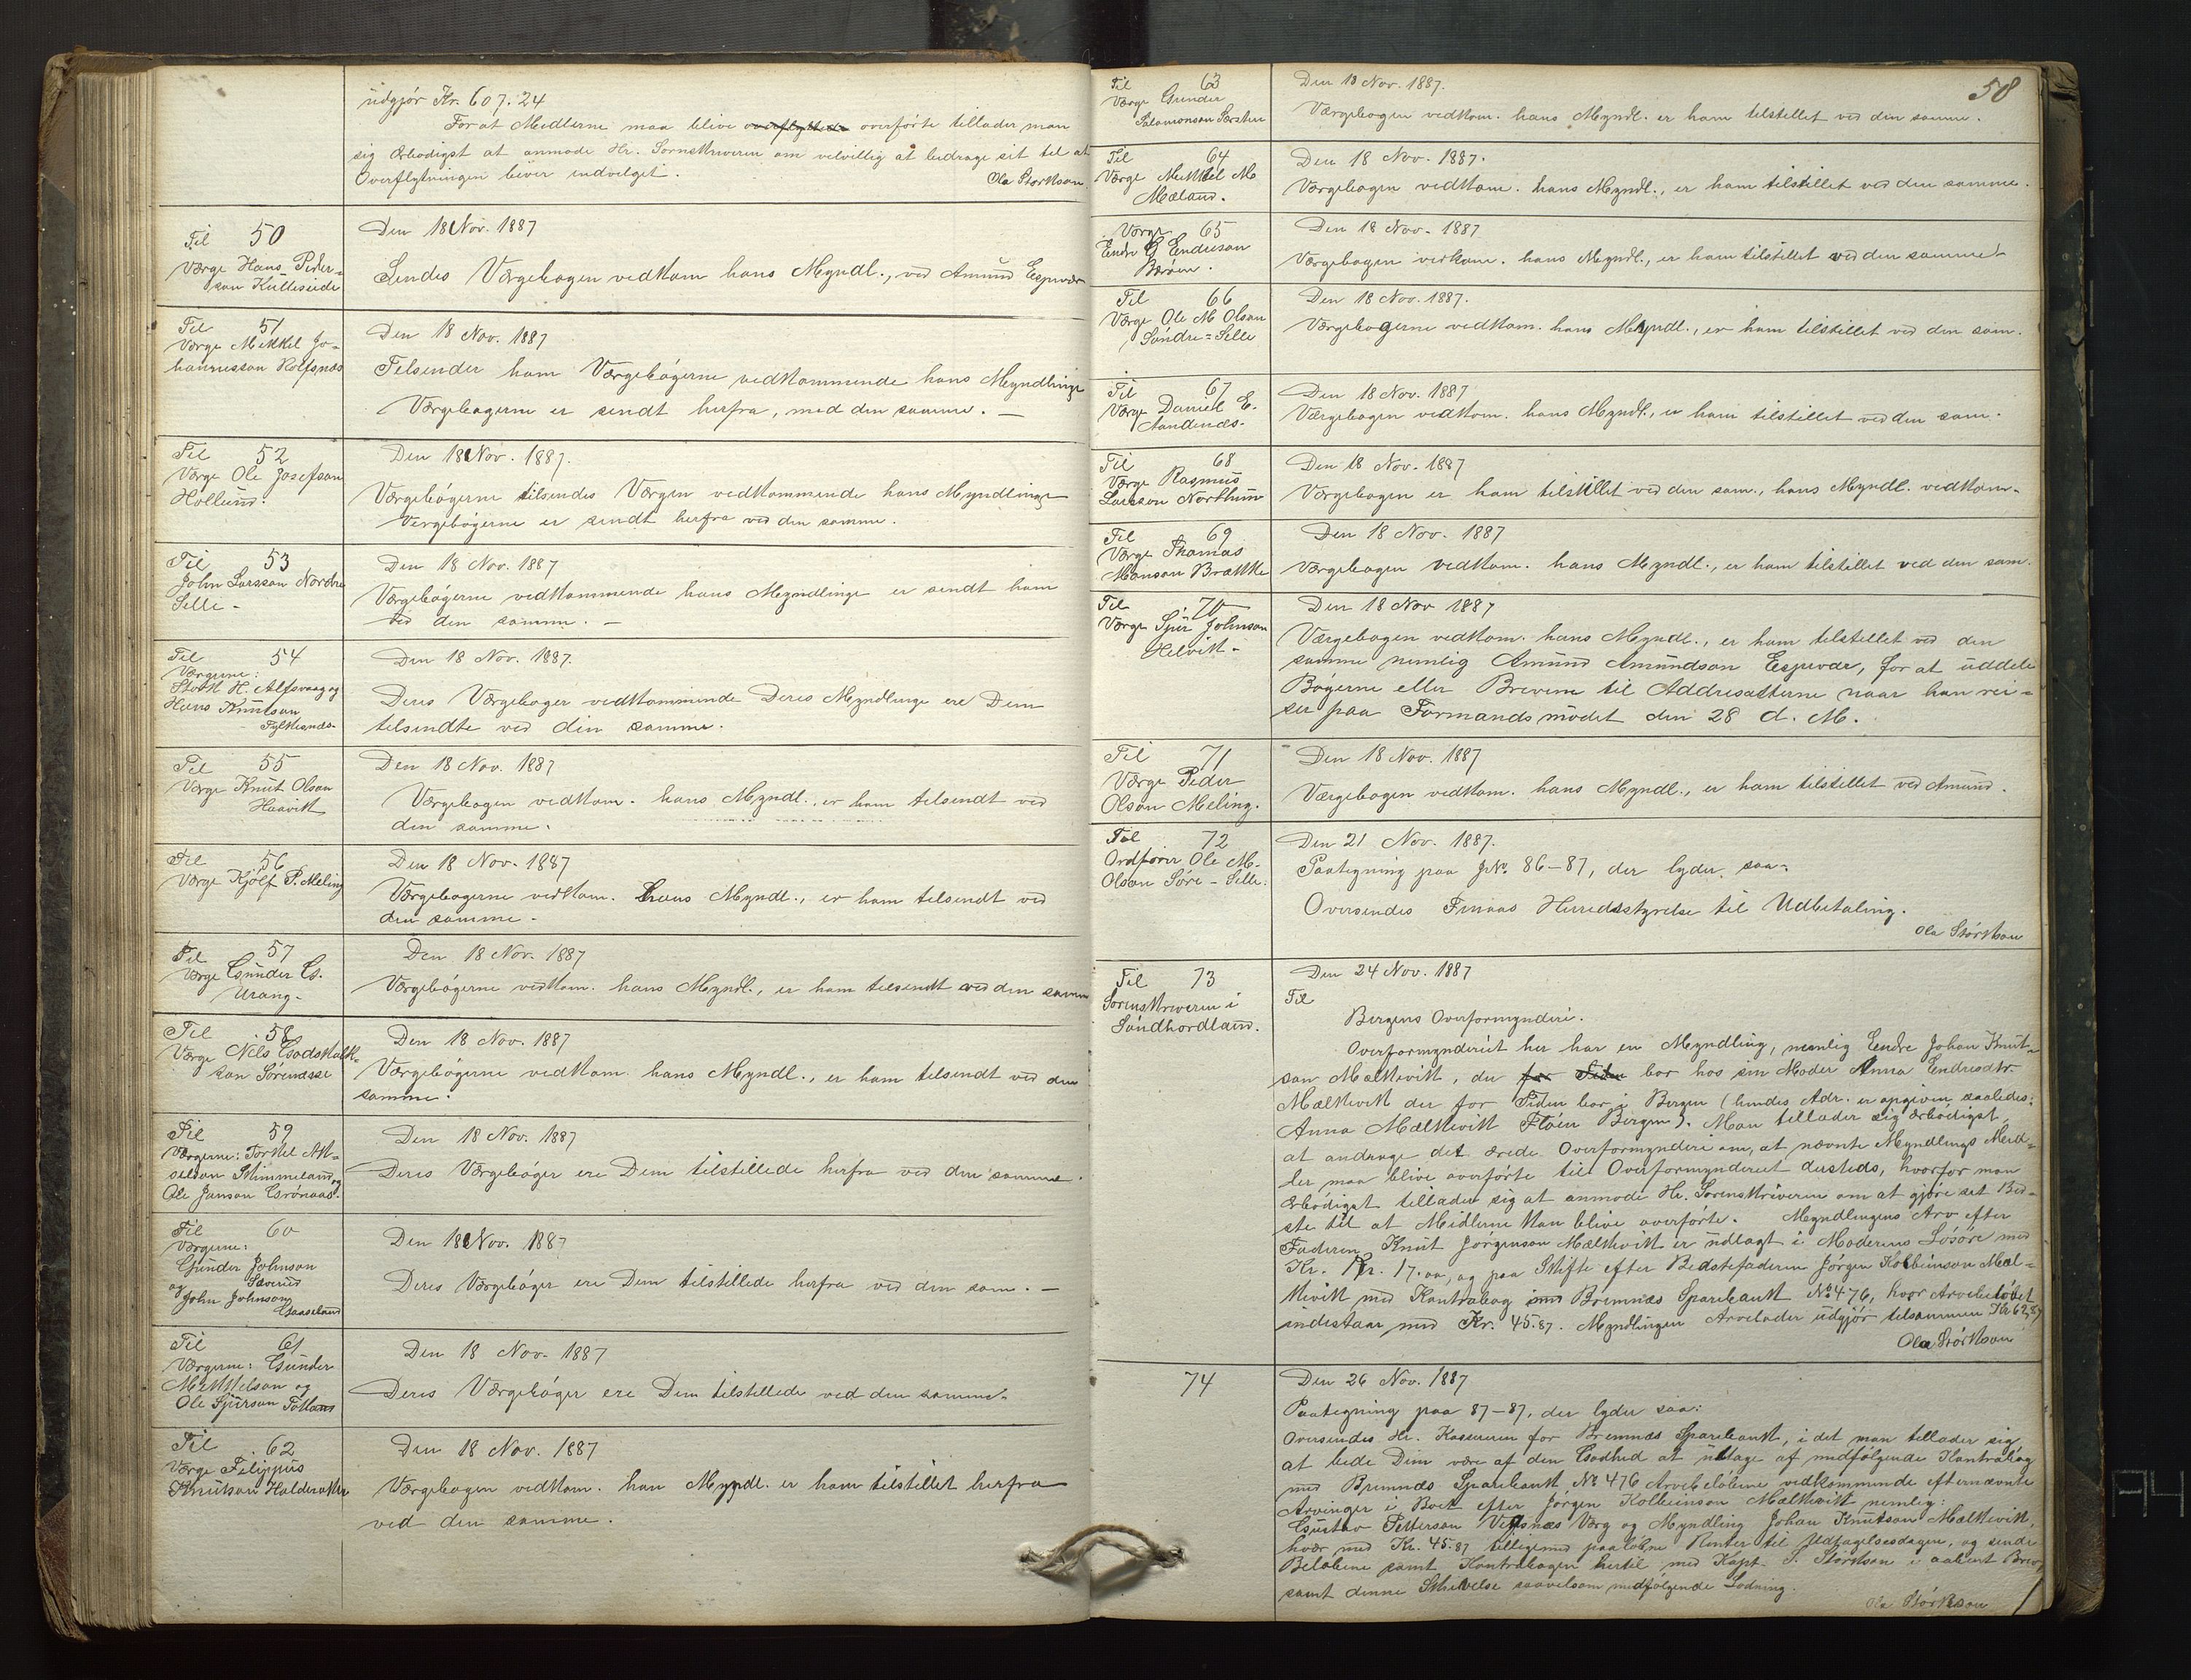 udgjør Kr. 607.24
For at Midlerne maa blive overflyttede overførte tillader man
sig ærbødigst at anmode Hr. Sorenskriveren om velvillig at bidrage sit til at
Overflytningen bliver indvilget.
Ola Størkson
Til 50
Værge Hans Peder-
son Kulleseide
Den 18 Nov. 1887
Sendes Værgebogen vedkom hans Myndl., ved Amund Espevær
Til 51
Værge Mikkel Jo-
hannesson Rolfsnæs
Den 18 Nov. 1887
Tilsender ham Værgebøgerne vedkommende hans Myndlinge
Værgebøgerne er sendt herfra, med den samme. —
Til 52
Værge Ole Josefson
Hollund.
Den 18 Nov. 1887.
Værgebøgerne tilsendes Værgen vedkommende hans Myndlinge
Værgebøgerne er sendt herfra ved den samme.
Til 53
John Larsson Nordre
Selle -
Den 18 Nov. 1887
Værgebøgerne vedkommende hans Myndlinge er sendt ham
ved den samme. —
Til 54
Værgerne:
Størk H. Alfsvaag og
Hans Knutson
Fylkesnæs-
Den 18 Nov. 1887.
Deres Værgebøger vedkommende Deres Myndlinge ere Dem
tilsendte ved den samme.
Til 55
Værge Knut Olson
Haavik
Den 18 Nov. 1887
Værgebogen vedkom. hans Myndl., er ham tilsendt ved
den samme.
Til 56
Værge Kjølf P. Meling
Den 18 Nov. 1887
Værgebøgerne vedkom. hans Myndl., er ham tilsendt ved
den samme-
Til 57
Værge Gunder G.
Urang-
Den 18 Nov. 1887
Værgebøgerne vedkom. hans Myndl., er ham tilsendt ved den samme
Til 58
Værge Nils Godskalk-
son Sørenæsse
Den 18 Nov. 1887
Værgebøgerne vedkom. hans Myndl., er ham tilsendt ved den
samme.
Til 59
Værgerne: Torkel Ak-
selson Skimmeland og
Ole Janson Grønaas-
Den 18 Nov. 1887
Deres Værgebøger ere Dem tilstillede herfra ved den samme.
Til 60
Værgerne:
Gunder Johnson
Søverud
og John Johnson
Gaaseland
Den 18 Nov. 1887
Deres Værgebøger ere Dem tilstillede herfra ved den sam. —
Til 61
Værgerne: Gunder
Mikkelson og
Ole Sjurson Totland
Den 18 Nov. 1887
Deres Værgebøger ere Dem tilstillede ved den samme-
Til 62
Værge Filippus
Knutson Holderaker
Den 18 Nov. 1887
Værgebogen vedkom. han Myndl. er ham tilstillet herfra
ved den samme.
58
Til 63
Værge Gunder
Salamonson
Den 18 Nov. 1887.
Værgebogen vedkom. hans Myndl. er ham tilstillet ved den samme.
Til 64
Værge Mikkel M
Mæland.
Den 18 Nov. 1887.
Værgebogen vedkom. hans Myndl., er ham tilstillet ved den samme.
Værge 65
Endre G Endreson
Børøen.
Den 18 Nov. 1887
Værgebogen vedkom. hans Myndl., er ham tilstillet ved den samme
Til 66
Værge Ole M Olson
Søndre=Selle
Den 18 Nov. 1887.
Værgebøgerne vedkom. hans Myndl., er ham tilstillet ved den sam.
Til 67
Værge Daniel E.
Aandenæs-
Den 18 Nov. 1887
Værgebogen vedkom. hans Myndl., er ham tilstillet ved den sam.
Til 68
Værge Rasmus
Larsson Nordhun
Den 18 Nov. 1887
Værgebogen er ham tilstillet ved den sam., hans Myndl. vedkom-
Til 69
Værge Thomas
Monson Brække
Den 18 Nov. 1887
Værgebogen vedkom. hans Myndl., er ham tilstillet ved den sam.
Til 70
Værge Sjur Johnson
Helvik-
Den 18 Nov 1887
Værgebogen vedkom. hans Myndl., er ham tilstillet ved den
samme nemlig Amund Amundson Espevær, for at uddele
Bøgerne eller Brevene til Addresatterne naar han rei-
ser paa Formandsmødet den 28 d. M.
Til 71
Værge Peder
Olson Meling.
Den 18 Nov. 1887
Værgebogen vedkom. hans Myndl., er ham tilstillet ved Amund.
Til 72
Ordfører Ole M-
Olson Søre-Selle.
Den 21 Nov. 1887.
Paategning paa J.No. 86-87, der lyder saa-
Oversendes Finaas Herredsstyrelse til Udbetaling.
Ola Størkson
Til 73
Sorenskriveren i
Søndhordland.
Den 24 Nov. 1887
Til
Bergens Overformynderi.
Overformynderiet her har en Myndling, nemlig Endre Johan Knut-
son Mælkevik, der for Tiden bor hos sin Moder Anna Endresdtr.
Mælkevik der for Tiden bor i Bergen (hendes Adr. er opgiven saaledes:
Anna Mælkevik Fløien Bergen). Man tillader sig ærbødigst
at andrage det ærede Overformynderi om, at nævnte Myndlings Mid-
ler maa blive overførte til Overformynderiet dersteds, hvorfor man
ærbødigst tillader sig at anmode Hr. Sorenskriveren om at gjøre set Bed-
ste til at Midlerne kan blive overførte. Myndlingens Arv efter
Faderen Knut Jørgenson Mælkevik er udlagt i Moderens Løsøre med
Kr. 17.00, og paa Skifte efter Bedstefaderen Jørgen Kolbeinson Mæl-
kevik med Kontrabog Bremnæs Sparebank No 476, hvor Arvebeløbet
indestaar med Kr. 45.87. Myndlingen Arvelader udgjør tilsammen Kr 62,87
Ola Størkson
74
Den 26 Nov. 1887
Paategning paa 87-87, der lyder saa:
Oversendes Hr. Kassereren for Bremnæs Sparebank, i det man tillader sig
at bede Dem være af den Godhed at udtage af medfølgende Kontrabog
med Bremnæs Sparebank No 476 Arvebeløbene vedkommende efternævnte
Arvinger i Boet efter Jørgen Kolbeinson Mælkevik nemlig:
Gustav Petterson Værg og Myndling Johan Knutson Mælkevik,
hvær med Kr. 45.87 tilligemed paaløbne Renter til Udtagelsesdagen, og sende
Beløbene samt Kontrabogen hertil med Kapt. S. Størkson i aabent Brev,
samt denne Skrivelse saavelsom medfølgende Lodning.
Ola Størkson